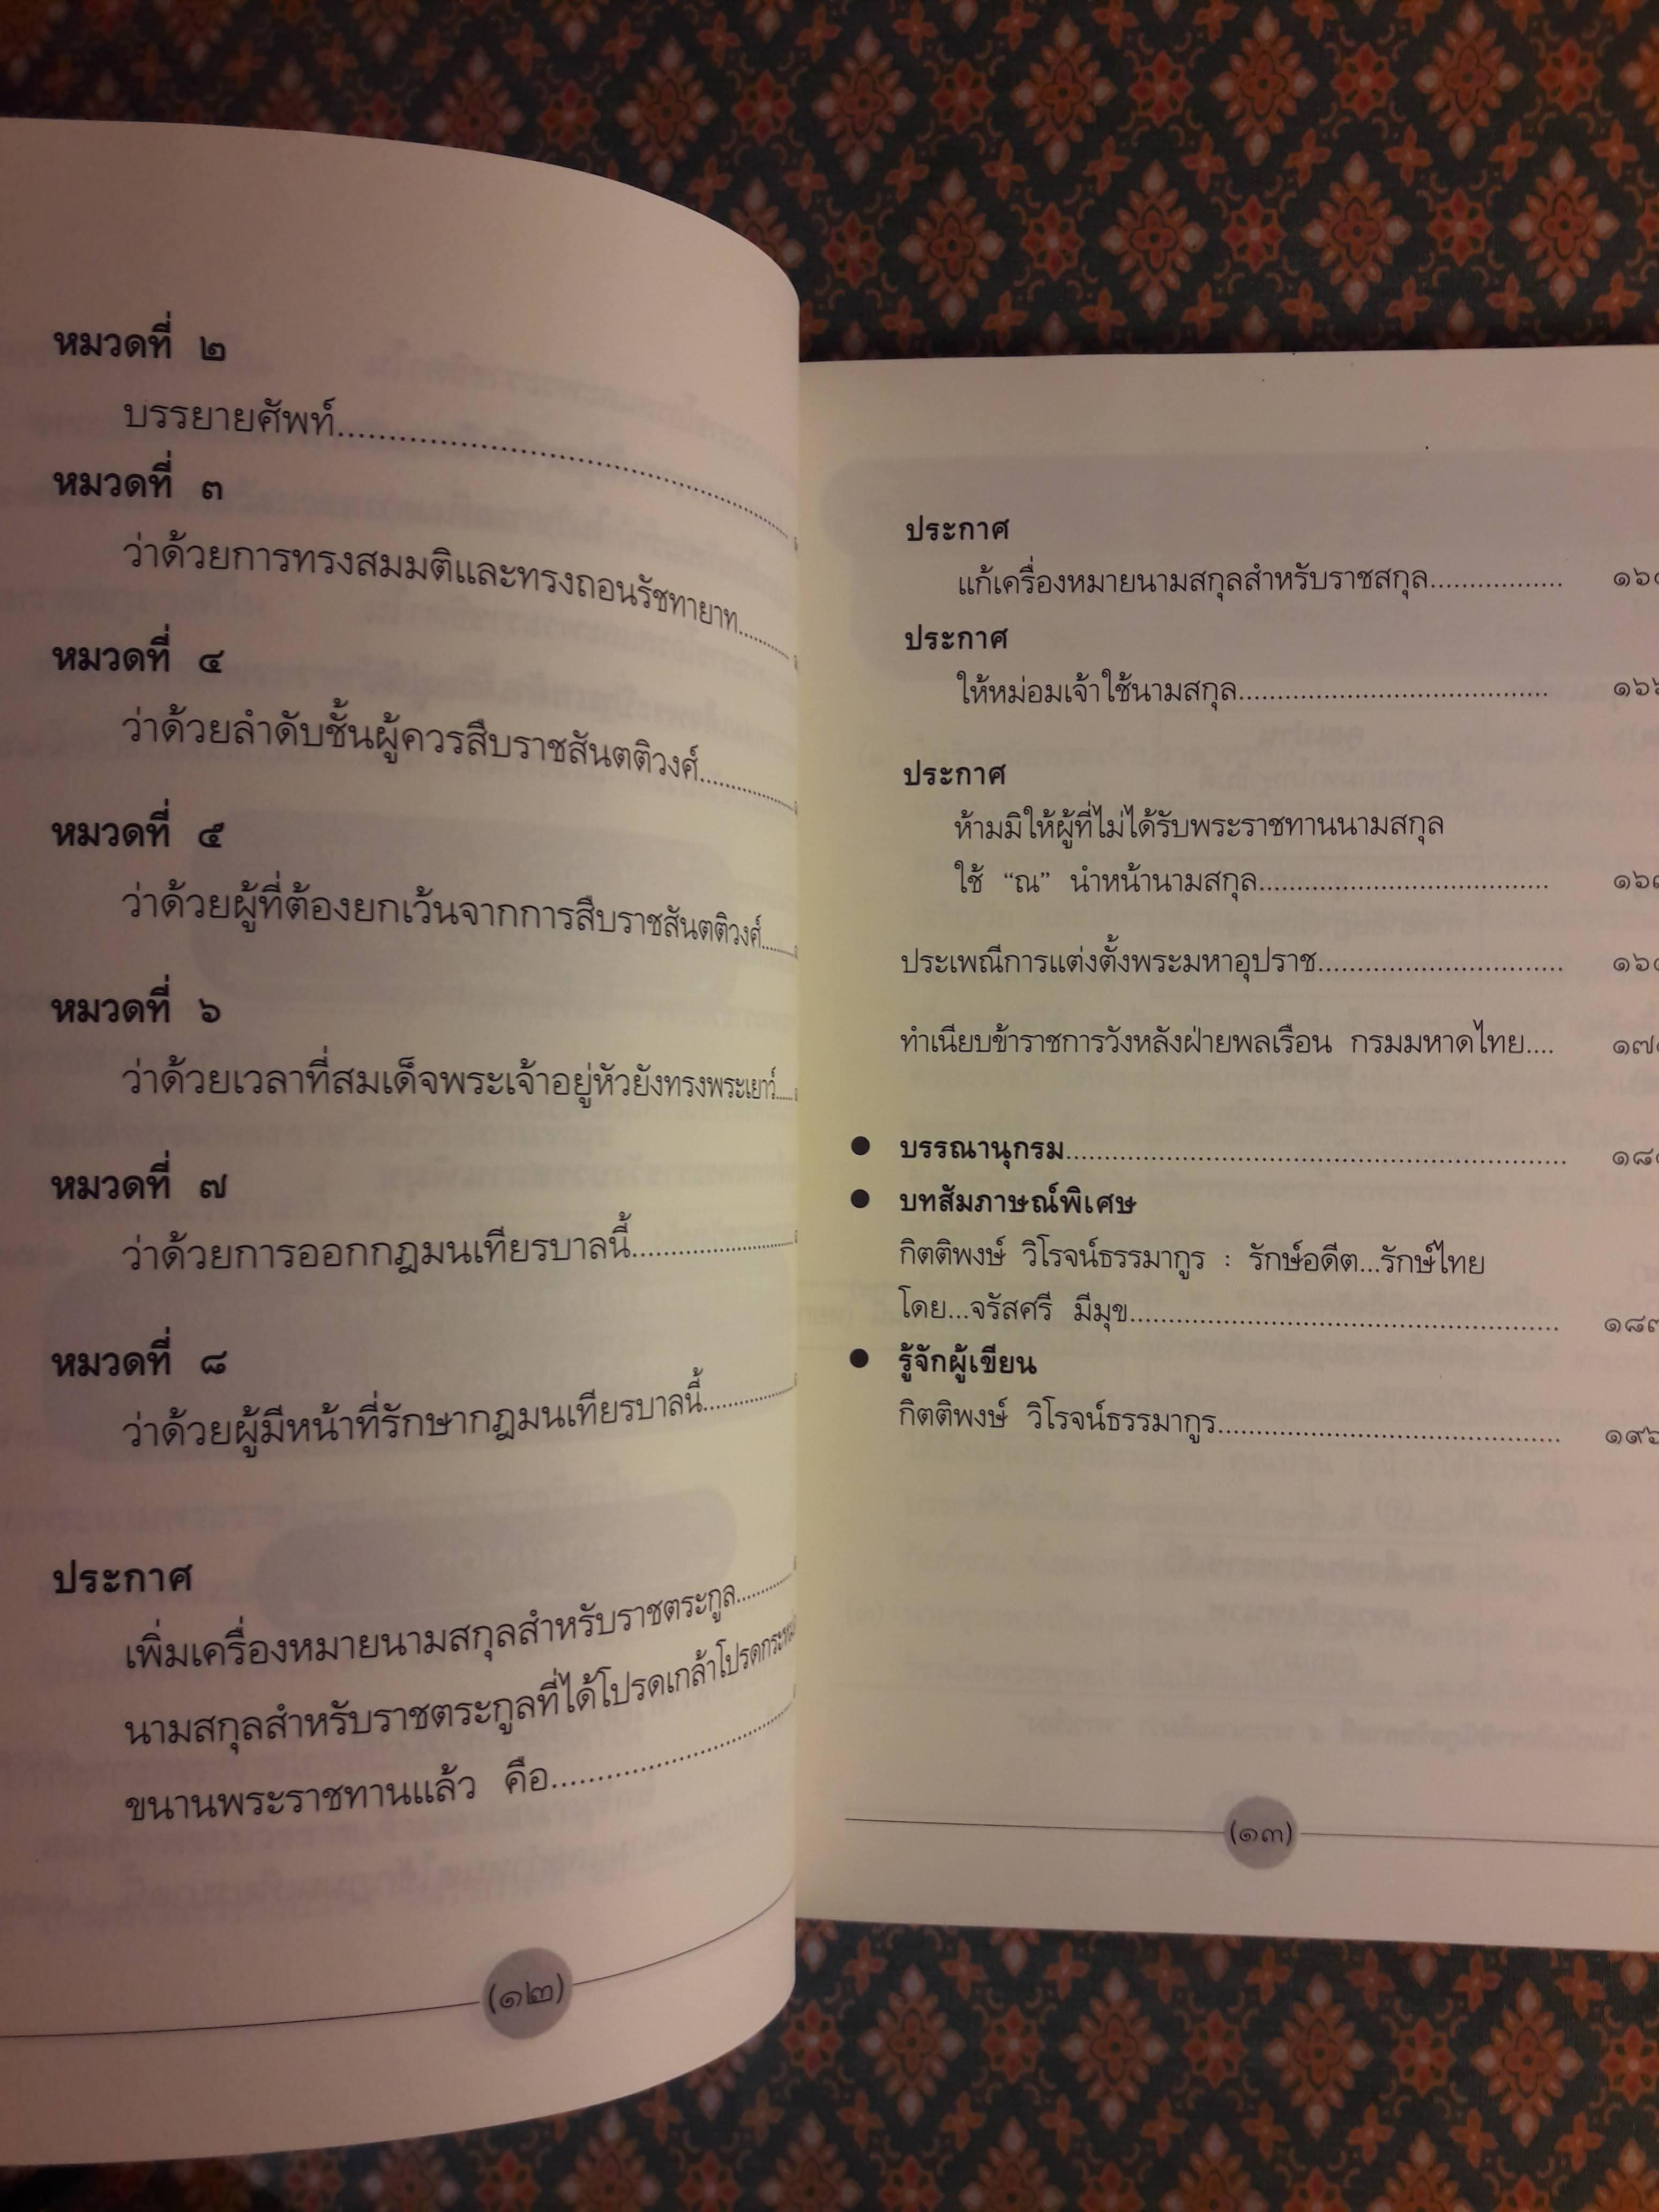 หมวดที่ ๒
บรรยายศัพท์....................
หมวดที่ ๓
ว่าด้วยการทรงสมมติและทรงถอนรัชทายาท..........
หมวดที่ ๔
ว่าด้วยลำดับชั้นผู้ควรสืบราชสันตติวงศ์..........
หมวดที่ ๕
ว่าด้วยผู้ที่ต้องยกเว้นจากการสืบราชสันตติวงศ์..........
หมวดที่ ๖
ว่าด้วยเวลาที่สมเด็จพระเจ้าอยู่หัวยังทรงพระเยาว์.....
หมวดที่ ๗
ว่าด้วยการออกกฎมนเทียรบาลนี้....................
หมวดที่ ๘
ว่าด้วยผู้มีหน้าที่รักษากฎมนเทียรบาลนี้...............
ประกาศ
เพิ่มเครื่องหมายนามสกุลสำหรับราชตระกูล..........
นามสกุลสำหรับราชตระกูลที่ได้โปรดเกล้าโปรดกระหม่อม
ขนานพระราชทานแล้ว คือ....................
(๑๒)
ประกาศ
แก้เครื่องหมายนามสกุลสำหรับราชสกุล.................
ประกาศ
ให้หม่อมเจ้าใช้นามสกุล........................................
ประกาศ
ห้ามมิให้ผู้ที่ไม่ได้รับพระราชทานนามสกุล
ใช้ “ณ” นำหน้านามสกุล......................................
ประเพณีการแต่งตั้งพระมหาอุปราช................................
ทำเนียบข้าราชการวังหลังฝ่ายพลเรือน กรมมหาดไทย....
● บรรณานุกรม..................................................................
● บทสัมภาษณ์พิเศษ
กิตติพงษ์ วิโรจน์ธรรมากูร : รักษ์อดีต...รักษ์ไทย
โดย...จรัสศรี มีมุข........................................................
● รู้จักผู้เขียน
กิตติพงษ์ วิโรจน์ธรรมากูร.............................................
(๑๓)